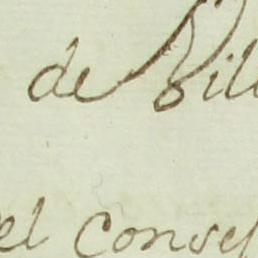 de Vill
el conse